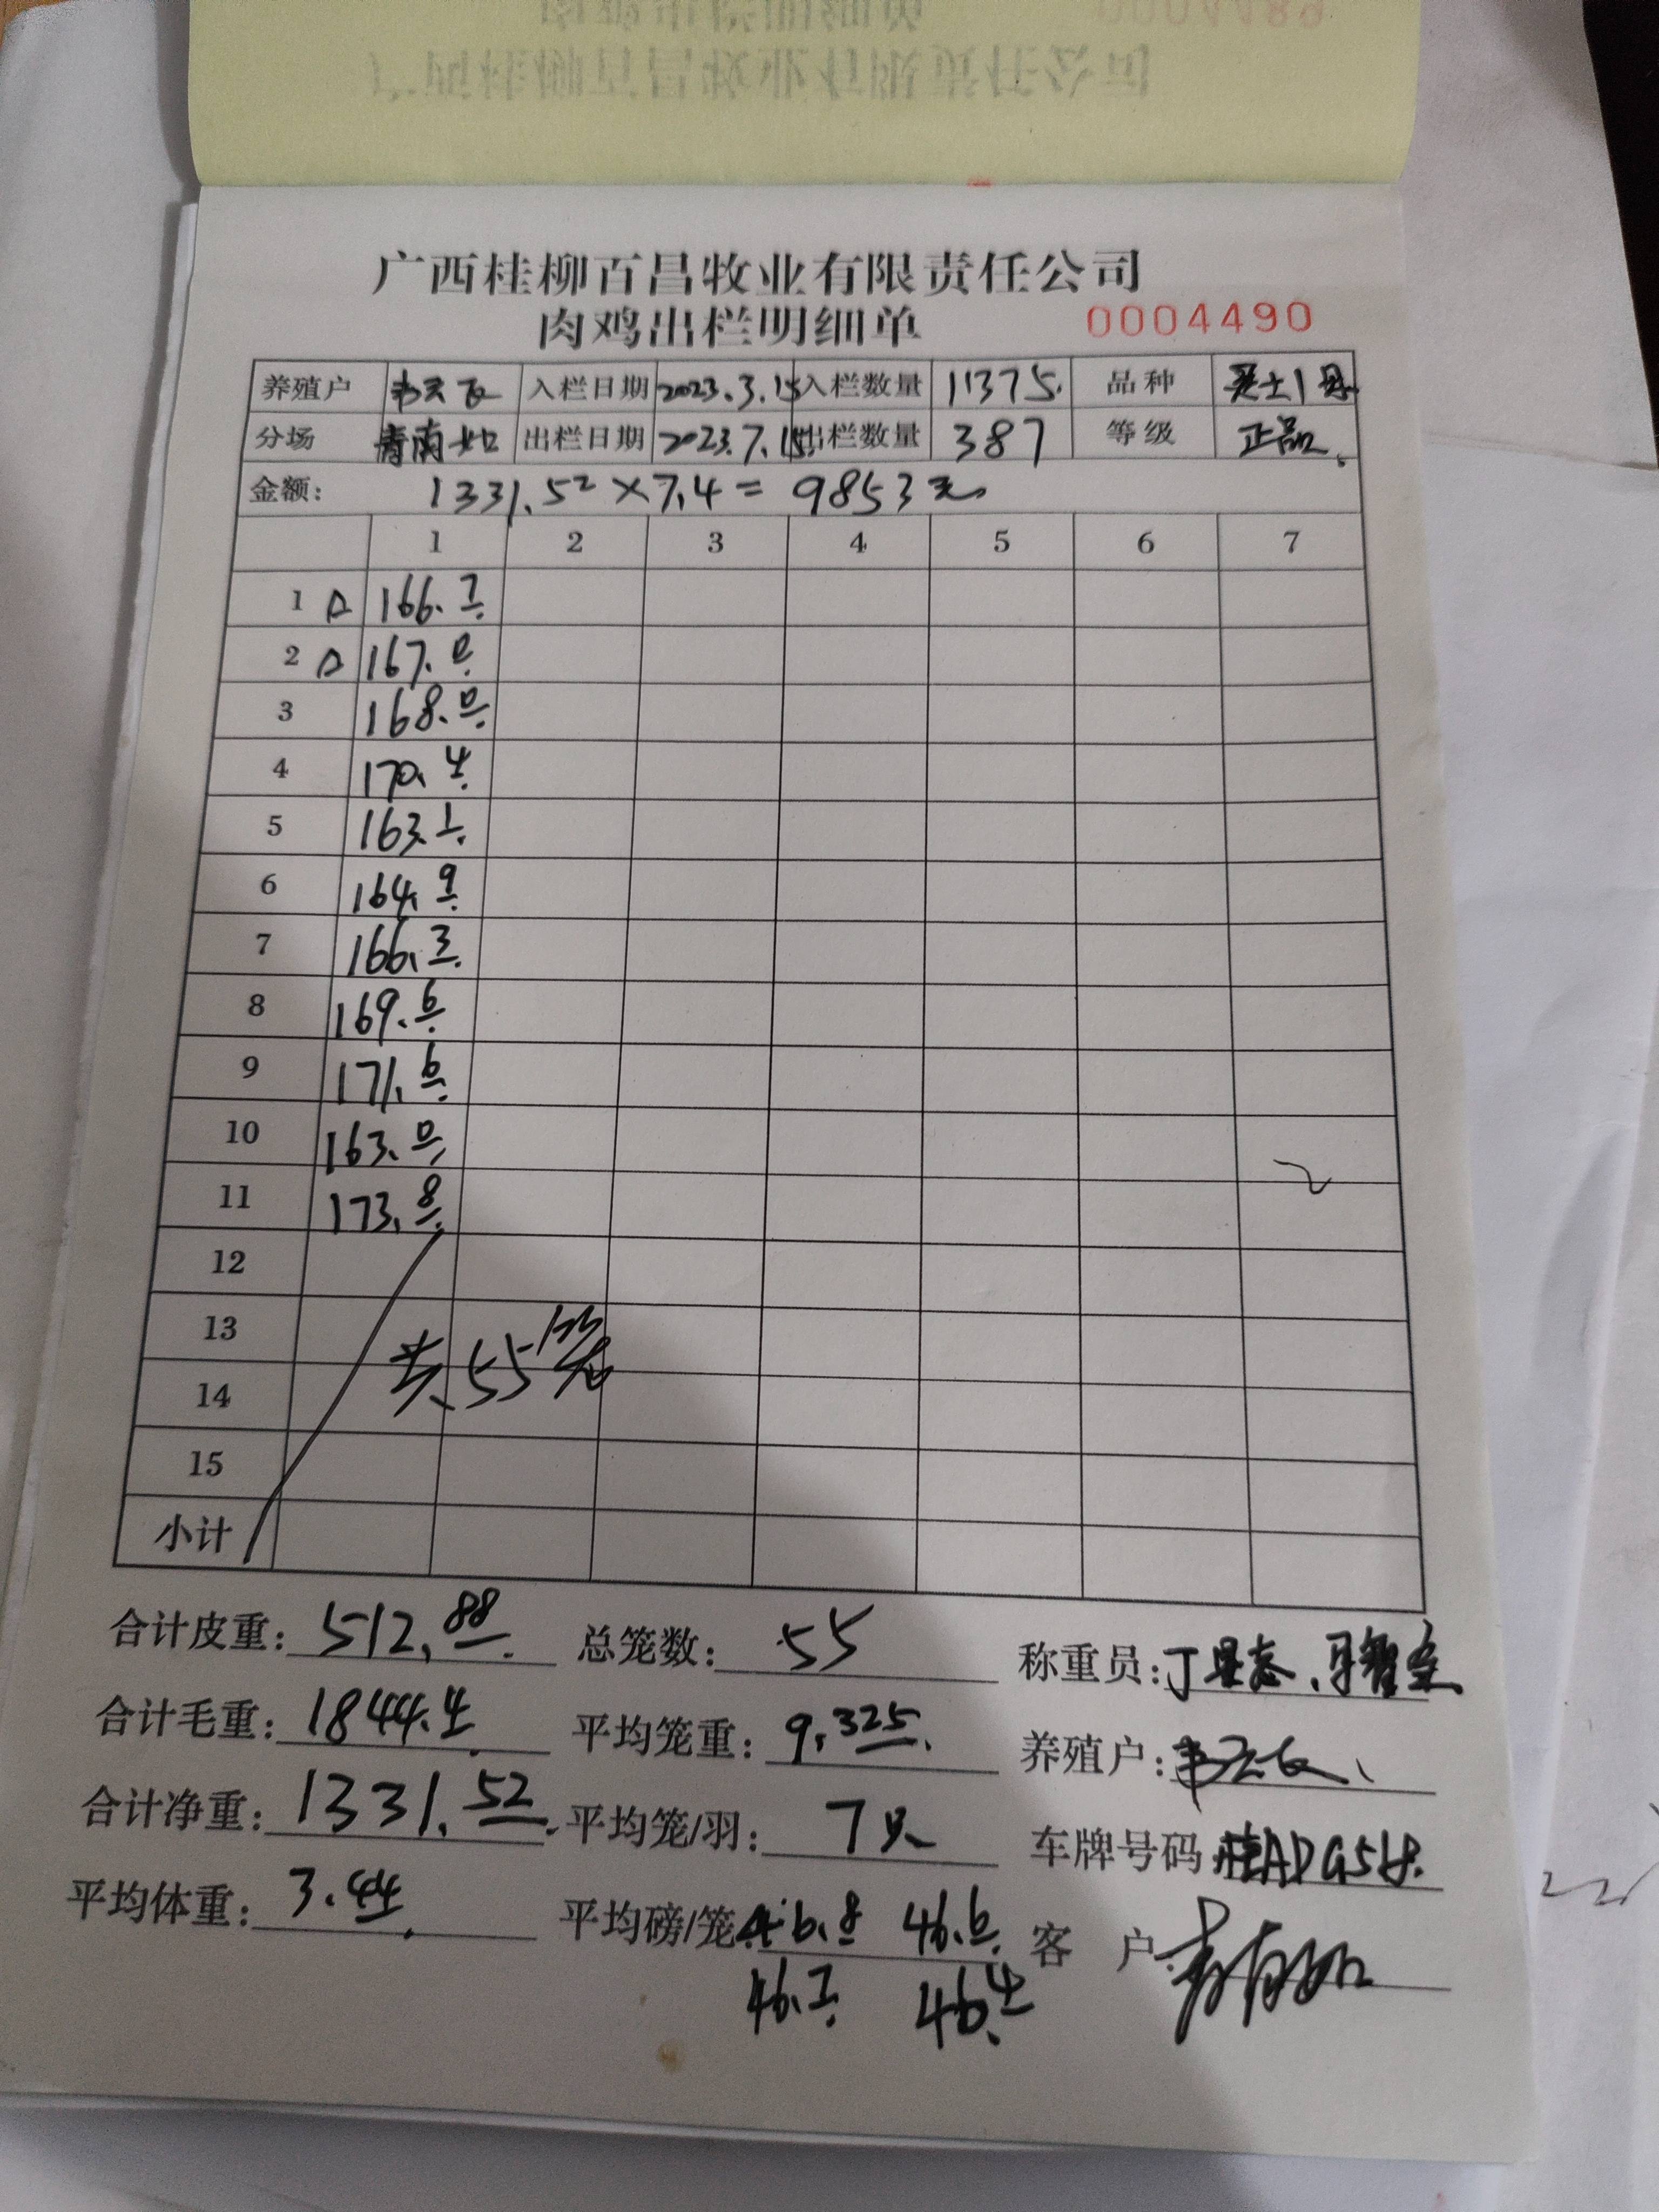 广西桂柳百昌牧业有限责任公司
肉鸡出栏明细单 0004490
养殖户 入栏日期 2023.3.15 入栏数量 11375. 品种
分场 出栏日期 2023.7.15. 出栏数量 387 等级 正品.
金额: 1331.52×7.4=9853元
1 2 3 4 5 6 7
1 166.7
2 167.0
3 168.0
4 170.4
5 163.1
6 164.9
7 166.3
8 169.6
9 171.6
10 163.0
11 173.8
12
13
14 共55笼
15
小计
合计皮重: 512.88 总笼数: 55 称重员:
合计毛重: 1844.4 平均笼重: 9.325 养殖户:
合计净重: 1331.52 平均笼/羽: 7只 车牌号码
平均体重: 3.44 平均磅/笼: 46.8 46.6 客户:
46.7 46.4